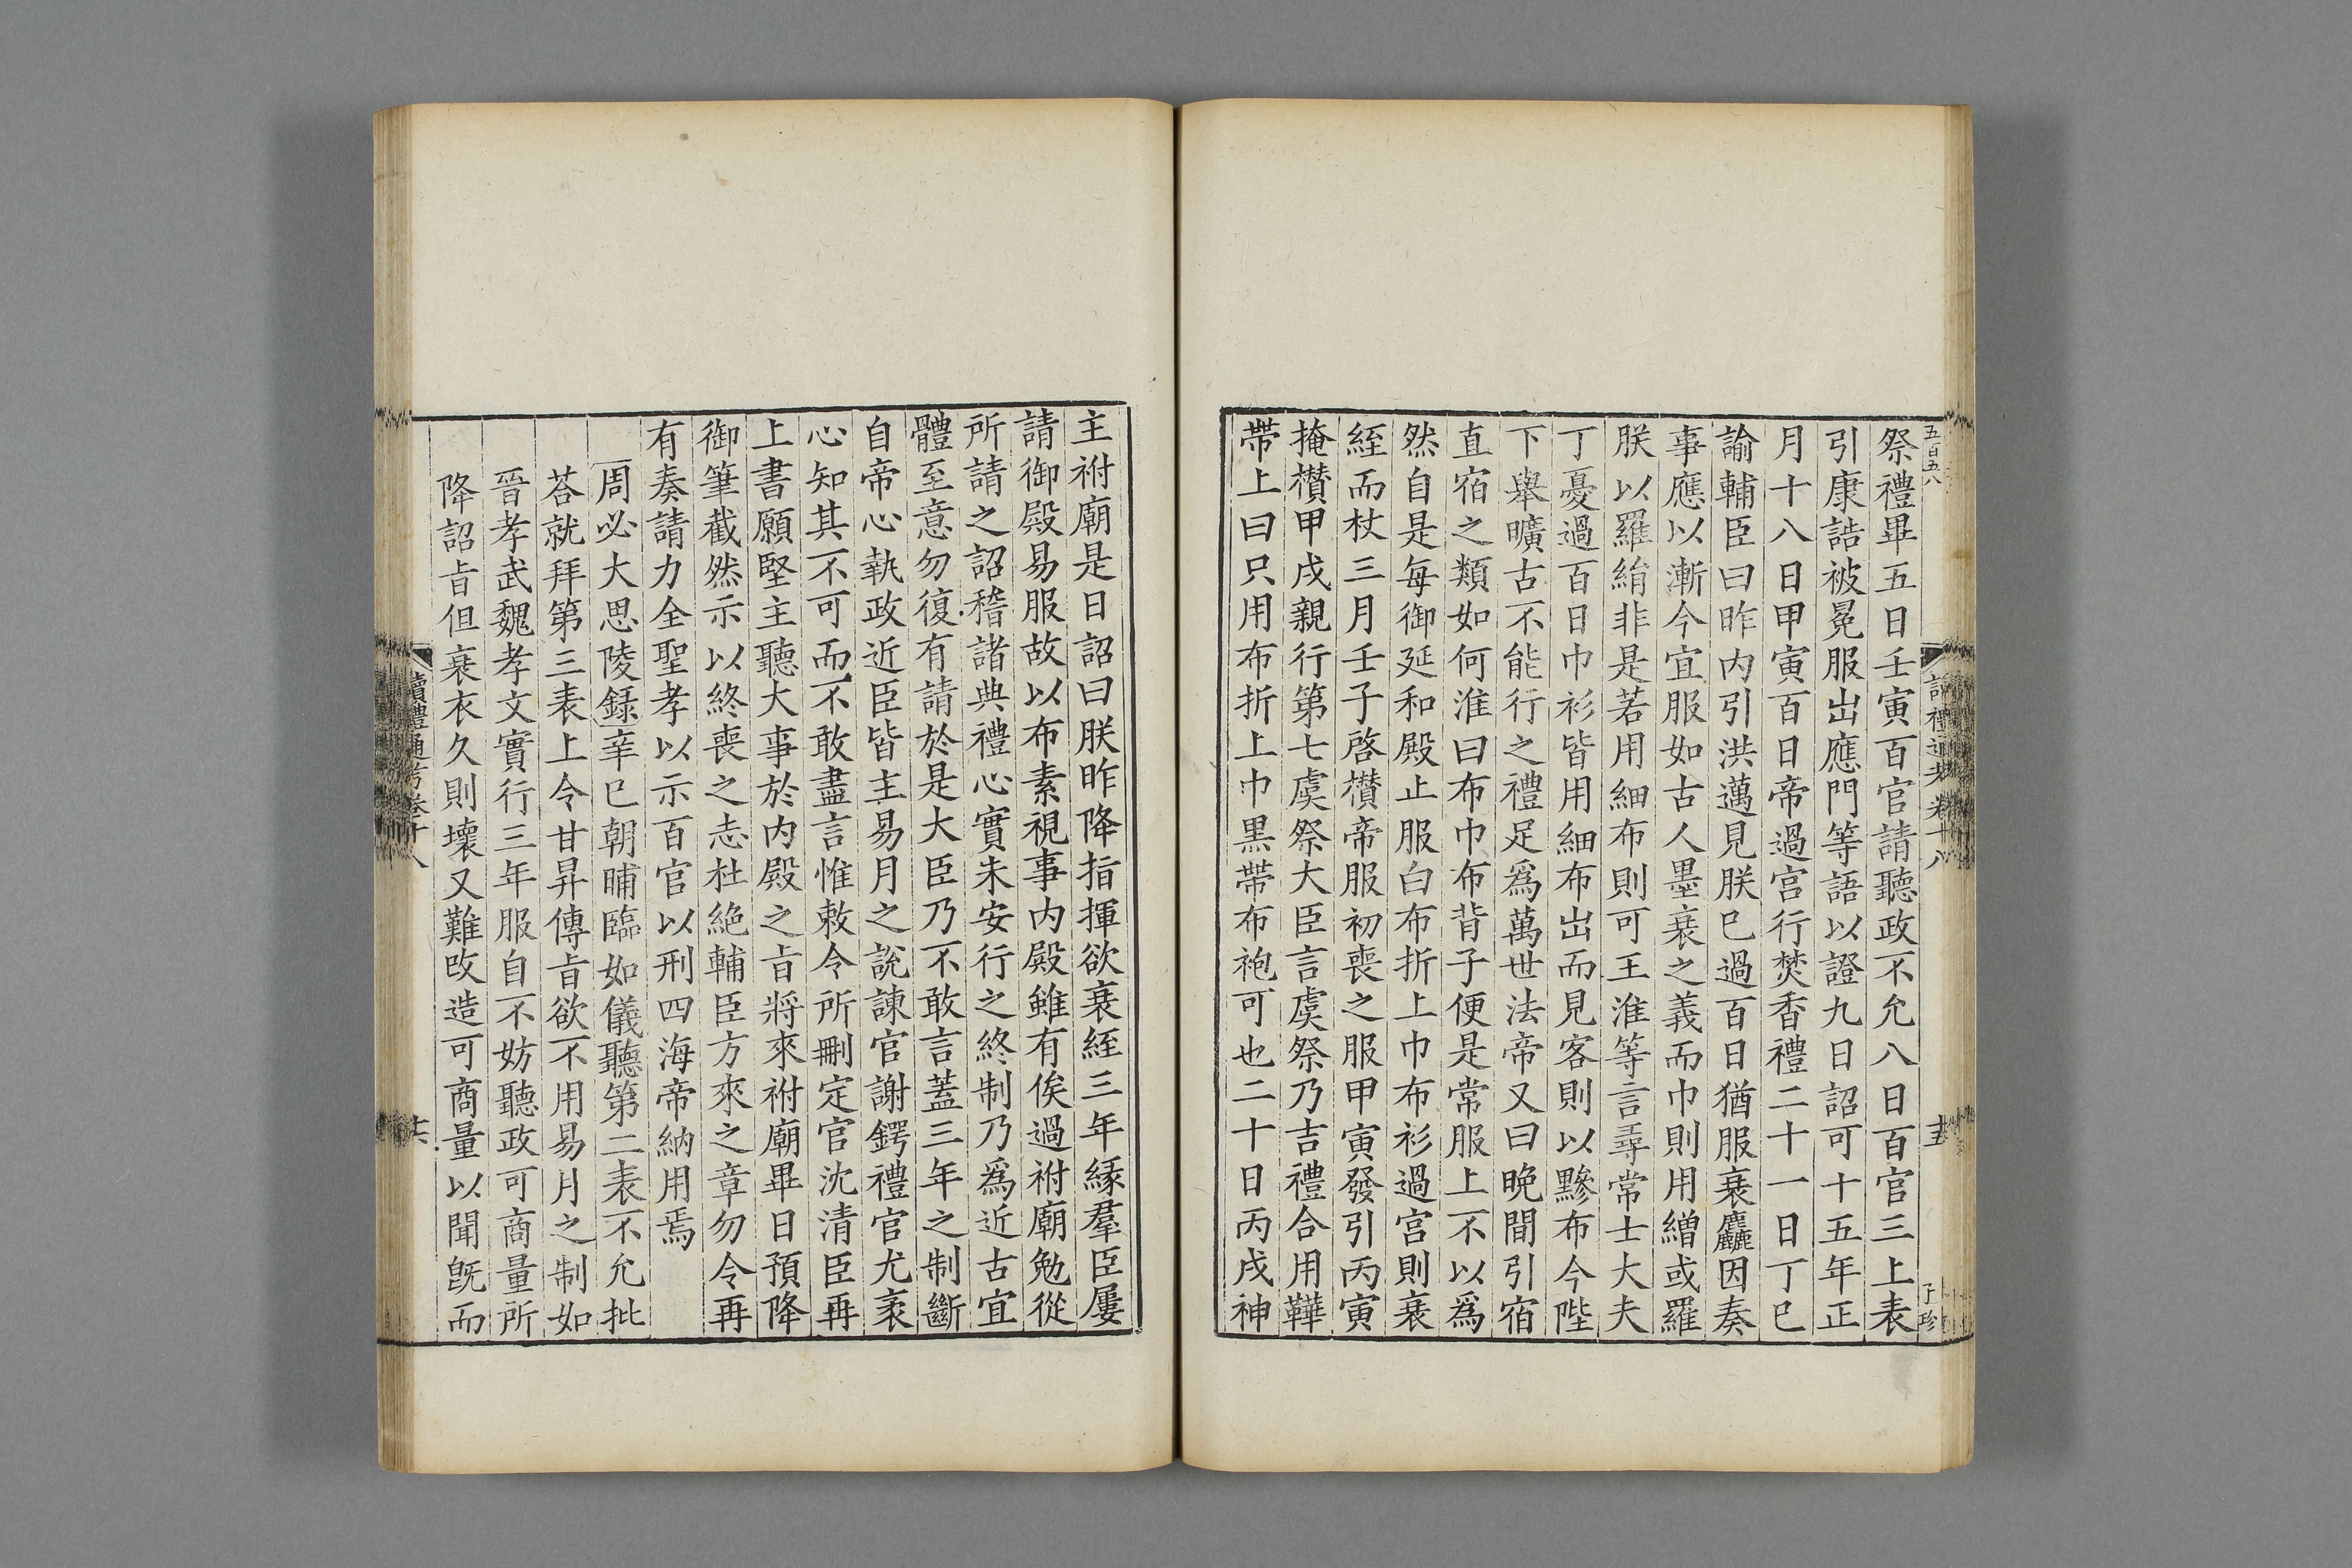 五百五八
讀禮通考卷十八
祭禮畢五日壬寅百官請聽政不允八日百官三上表
引康誥被冕服出應門等語以證九日詔可十五年正
月十八日甲寅百日帝過宮行焚香禮二十一日丁巳
諭輔臣曰昨内引洪邁見朕已過百日猶服衰麤因奏
事應以漸今宜服如古人墨衰之義而巾則用繒或羅
朕以羅絹非是若用細布則可王淮等言尋常士大夫
丁憂過百日巾衫皆用細布出而見客則以黲布今陛
下舉曠古不能行之禮足爲萬世法帝又曰晚間引宿
直宿之類如何淮曰布巾布背子便是常服上不以爲
然自是每御延和殿止服白布折上巾布衫過宮則衰
絰而杖三月壬子啓欑帝服初喪之服甲寅發引丙寅
掩欑甲戌親行第七虞祭大臣言虞祭乃吉禮合用鞾
帶上曰只用布折上巾黑帶布袍可也二十日丙戌神
主祔廟是日詔曰朕昨降指揮欲衰絰三年緣羣臣屢
請御殿易服故以布素視事内殿雖有俟過祔廟勉從
所請之詔稽諸典禮心實未安行之終制乃爲近古宜
體至意勿復有請於是大臣乃不敢言蓋三年之制斷
自帝心執政近臣皆主易月之說諫官謝鍔禮官尤袤
心知其不可而不敢盡言惟敕令所刪定官沈清臣再
上書願堅主聽大事於内殿之旨將來祔廟畢日預降
御筆截然示以終喪之志杜絕輔臣方來之章勿令再
有奏請力全聖孝以示百官以刑四海帝納用焉
周必大思陵録辛巳朝晡臨如儀聽第二表不允批
荅就拜第三表上令甘昇傳旨欲不用易月之制如
晉孝武魏孝文實行三年服自不妨聽政可商量所
降詔旨但衰衣久則壞又難改造可商量以聞旣而
讀禮通考卷十八